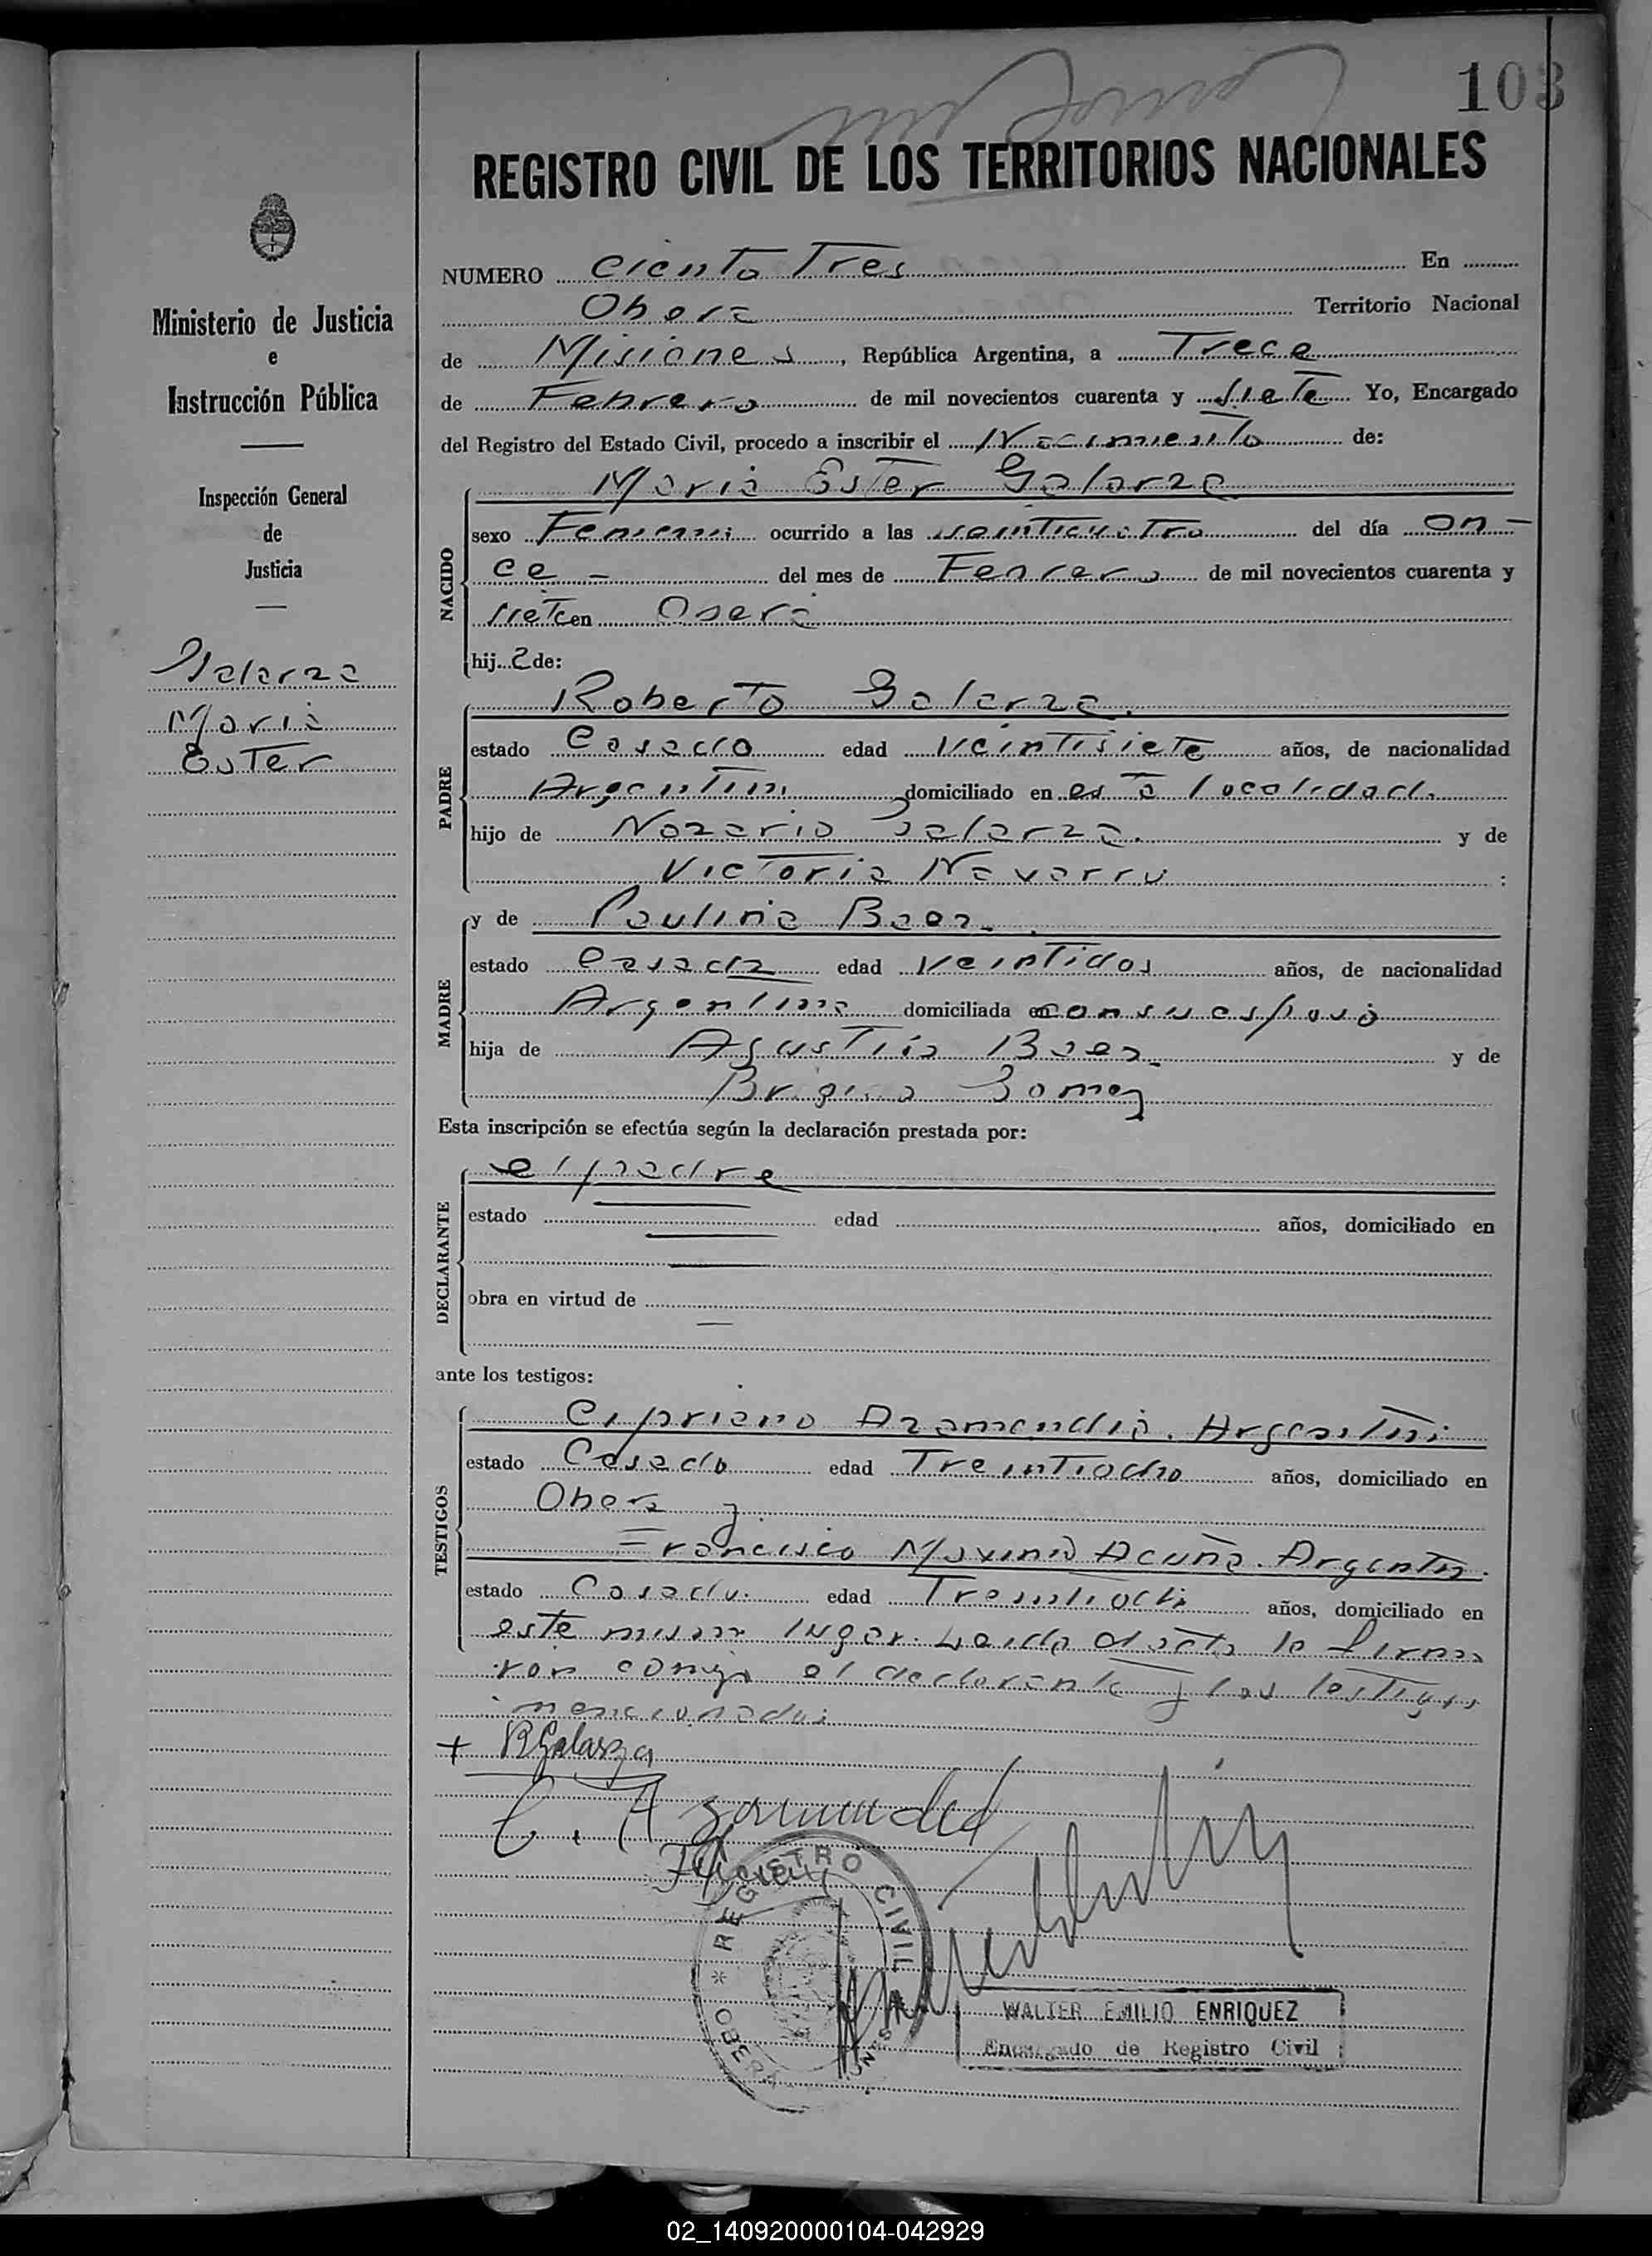 103
REGISTRO CIVIL DE LOS TERRITORIOS NACIONALES
Ministerio de Justicia
e
Instrucción Pública
Inspección General
de
Justicia
Galarza
Maria
Ester
NUMERO Ciento Tres En
Obera Territorio Nacional
de Misiones, República Argentina, a Trece
de Febrero de mil novecientos cuarenta y siete Yo, Encargado
del Registro del Estado Civil, procedo a inscribir el Nacimiento de:
NACIDO
Maria Ester Galarza
sexo Femenino ocurrido a las veinticuatro del día on-
ce - del mes de Febrero de mil novecientos cuarenta y
siete en Obera
hij a de:
PADRE
Roberto Galarza.
estado Casado edad veintisiete años, de nacionalidad
Argentino domiciliado en esta localidad.
hijo de Nazario Galarza. y de
Victoria Navarro :
MADRE
y de Paulina Baez.
estado Casada edad veintidos años, de nacionalidad
Argentina domiciliada en con su esposo
hija de Agustin Baez y de
Brigida Gomez
Esta inscripción se efectúa según la declaración prestada por:
DECLARANTE
el padre
estado edad años, domiciliado en
obra en virtud de
ante los testigos:
TESTIGOS
Cipriano Azamendia. Argentino
estado Casado edad Treintiocho años, domiciliado en
Obera y
Francisco Maximo Acuña. Argentino.
estado Casado. edad Treintiocho años, domiciliado en
este mismo lugar. Leida el acta la firma
ron conmigo el declarante y los testigos
mencionados
+ R Galarza
C. Azamendia
REGISTRO CIVIL
OBERA
WALTER EMILIO ENRIQUEZ
Encargado de Registro Civil
02_140920000104-042929